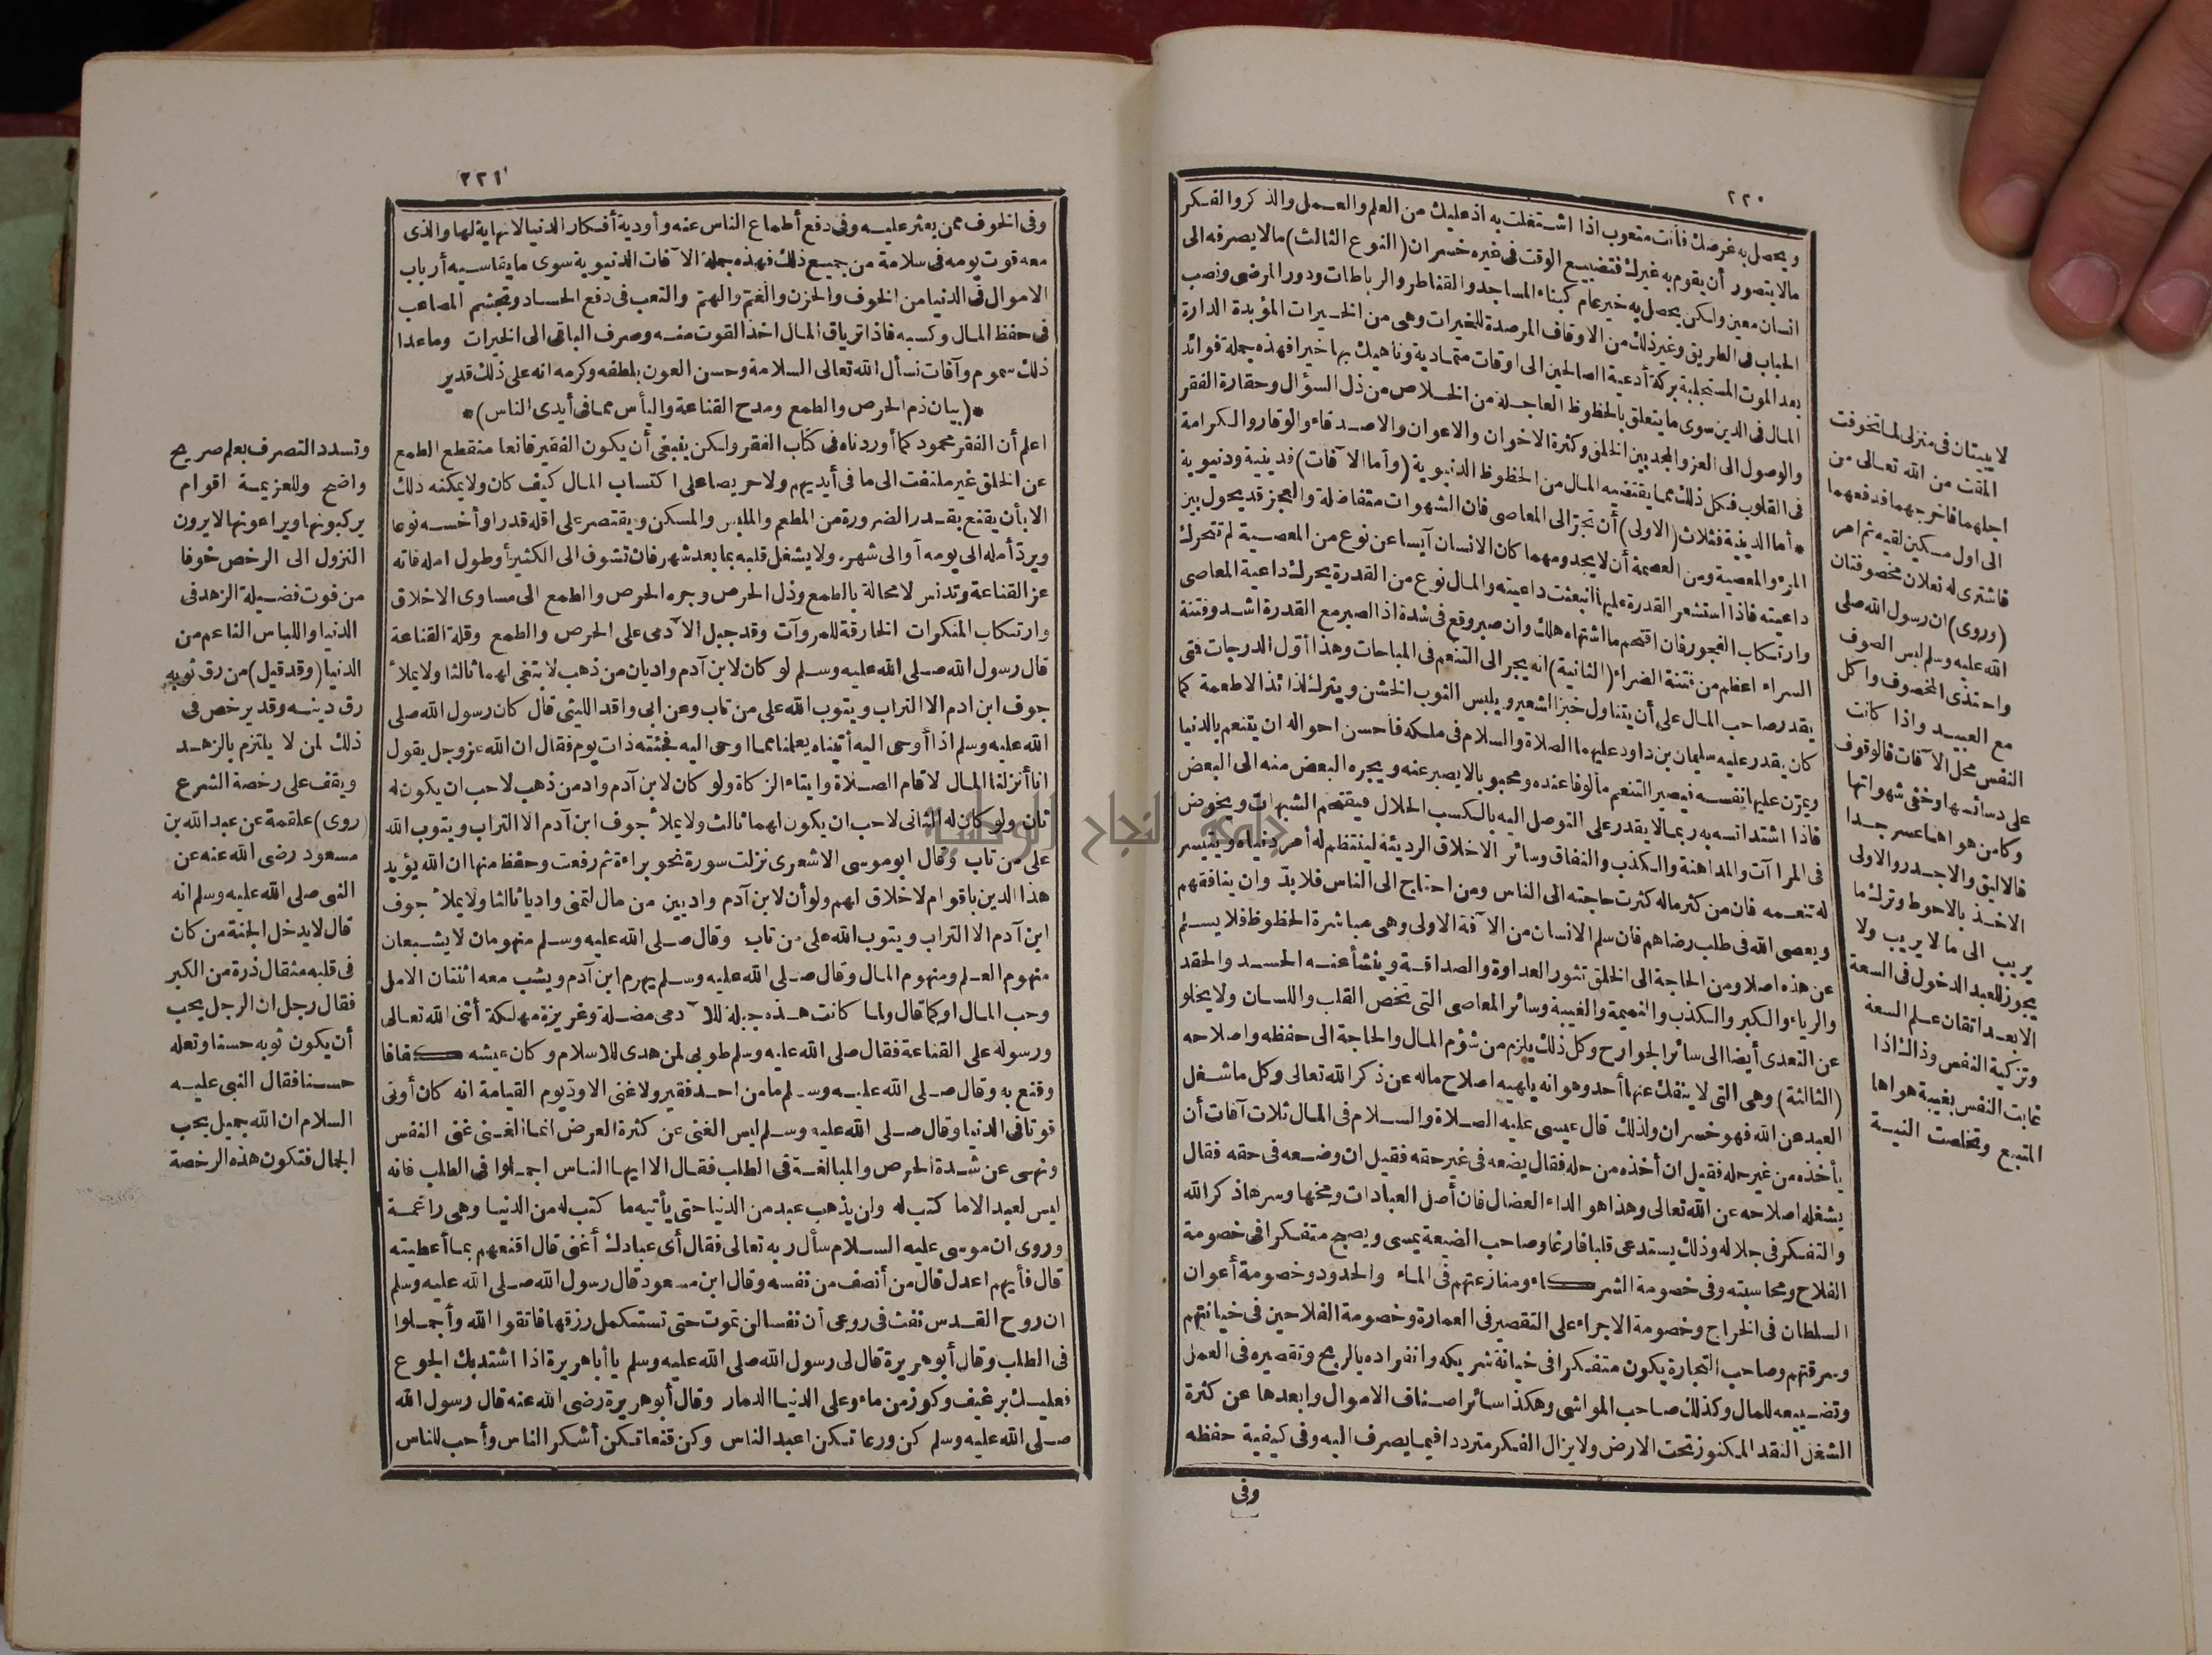 ٢٢٠
ويحصل به غرضك فأنت متعوب اذا اشتغلت به اذ عليك من العلم والعمل والذكر والفكر
مالا يتصور أن يقوم به غيرك فتضييع الوقت فى غيره خسران (النوع الثالث) مالا يصرفه الى
انسان معين ولكن يحصل به خير عام كبناء المساجد والقناطر والرباطات ودور المرضى ونصب
الحباب فى الطريق وغير ذلك من الاوقاف المرصدة للخيرات وهى من الخيرات المؤبدة الدارة
بعد الموت المستجلبة بركة أدعية الصالحين الى اوقات متمادية وناهيك بها خيرا فهذه جملة فوائد
المال فى الدين سوى ما يتعلق بالحظوظ العاجلة من الخلاص من ذل السؤال وحقارة الفقر
والوصول الى العز والمجد بين الخلق وكثرة الاخوان والاعوان والاصدقاء والوقار والكرامة
فى القلوب فكل ذلك مما يقتضيه المال من الحظوظ الدنيوية (وأما الآفات) فدينية ودنيوية
* أما الدينية فثلاث (الاولى) أن تجرّ الى المعاصى فان الشهوات متفاضلة والعجز قد يحول بين
المرء والمعصية ومن العصمة أن لا يجد ومهما كان الانسان آيسا عن نوع من المعصية لم تتحرك
داعيته فاذا استشعر القدرة عليها انبعثت داعيته والمال نوع من القدرة يحرك داعية المعاصى
وارتكاب الفجور فان اقتحم ما اشتهاه هلك وان صبر وقع فى شدة اذ الصبر مع القدرة اشد وفتنة
السراء اعظم من فتنة الضراء (الثانية) انه يجر الى التنعم فى المباحات وهذا أوّل الدرجات فمتى
يقدر صاحب المال على أن يتناول خبز الشعير ويلبس الثوب الخشن ويترك لذائذ الاطعمة كما
كان يقدر عليه سليمان بن داود عليهما الصلاة والسلام فى ملكه فأحسن احواله ان يتنعم بالدنيا
ويمرّن عليها نفسه فيصير التنعم مألوفا عنده ومحبوبا لا يصبر عنه ويجره البعض منه الى البعض
فاذا اشتد انسه به ربما لا يقدر على التوصل اليه بالكسب الحلال فيقتحم الشبهات ويخوض
فى المراآت والمداهنة والكذب والنفاق وسائر الاخلاق الرديئة لينتظم له أمر دنياه ويتيسر
له تنعمه فان من كثر ماله كثرت حاجته الى الناس ومن احتاج الى الناس فلا بدّ وان ينافقهم
ويعصى الله فى طلب رضاهم فان سلم الانسان من الآفة الاولى وهى مباشرة الحظوظ فلا يسلم
عن هذه اصلا ومن الحاجة الى الخلق تثور العداوة والصداقة وينشأ عنه الحسد والحقد
والرياء والكبر والكذب والنميمة والغيبة وسائر المعاصى التى تخص القلب واللسان ولا يخلو
عن التعدى أيضا الى سائر الجوارح وكل ذلك يلزم من شؤم المال والحاجة الى حفظه واصلاحه
(الثالثة) وهى التى لا ينفك عنها أحد وهو انه يلهيه اصلاح ماله عن ذكر الله تعالى وكل ما شغل
العبد عن الله فهو خسران ولذلك قال عيسى عليه الصلاة والسلام فى المال ثلاث آفات أن
يأخذه من غير حله فقيل ان أخذه من حله فقال يضعه فى غير حقه فقيل ان وضعه فى حقه فقال
يشغله اصلاحه عن الله تعالى وهذا هو الداء العضال فان أصل العبادات ومخها وسرها ذكر الله
والتفكر فى جلاله وذلك يستدعى قلبا فارغا وصاحب الضيعة يمسى ويصبح متفكرا فى خصومة
الفلاح ومحاسبته وفى خصومة الشركاء ومنازعتهم فى الماء والحدود وخصومة أعوان
السلطان فى الخراج وخصومة الاجراء على التقصير فى العمارة وخصومة الفلاحين فى خيانتهم
وسرقتهم وصاحب التجارة يكون متفكرا فى خيانة شريكه وانفراده بالربح وتقصيره فى العمل
وتضييعه للمال وكذلك صاحب المواشى وهكذا سائر اصناف الاموال وابعدها عن كثرة
الشغل النقد المكنوز تحت الارض ولا يزال الفكر مترددا فيما يصرف اليه وفى كيفية حفظه
وفى
لا يبيتان فى منزلى لما تخوفت
المقت من الله تعالى من
اجلهما فاخرجهما فدفعهما
الى اول مسكين لقيه ثم امر
فاشترى له نعلان مخصوفتان
(وروى) ان رسول الله صلى
الله عليه وسلم لبس الصوف
واحتذى المخصوف واكل
مع العبيد واذا كانت
النفس محل الآفات فالوقوف
على دسائسها وخفى شهواتها
وكامن هواها عسر جدا
فالاليق والاجدر والاولى
الاخذ بالاحوط وترك ما
يريب الى ما لا يريب ولا
يجوز للعبد الدخول فى السعة
الا بعد اتقان علم السعة
وتزكية النفس وذاك اذا
غابت النفس بغيبة هواها
المتبع وتخلصت النية
٢٢١
وفى الخوف ممن يعثر عليه وفى دفع أطماع الناس عنه وأودية أفكار الدنيا لانهاية لها والذى
معه قوت يومه فى سلامة من جميع ذلك فهذه جملة الآفات الدنيوية سوى ما يقاسيه أرباب
الاموال فى الدنيا من الخوف والحزن والغم والهم والتعب فى دفع الحساد وتجشم المصاعب
فى حفظ المال وكسبه فاذا ترياق المال اخذ القوت منه وصرف الباقى الى الخيرات وما عدا
ذلك سموم وآفات نسأل الله تعالى السلامة وحسن العون بلطفه وكرمه انه على ذلك قدير
*(بيان ذم الحرص والطمع ومدح القناعة واليأس مما فى أيدى الناس)*
اعلم أن الفقر محمود كما أوردناه فى كتاب الفقر ولكن ينبغى أن يكون الفقير قانعا منقطع الطمع
عن الخلق غير ملتفت الى ما فى أيديهم ولا حريصا على اكتساب المال كيف كان ولا يمكنه ذلك
الا بأن يقنع بقدر الضرورة من المطعم والملبس والمسكن ويقتصر على اقله قدرا وأخسه نوعا
ويردّ أمله الى يومه أو الى شهره ولا يشغل قلبه بما بعد شهر فان تشوف الى الكثير أو طول امله فاته
عز القناعة وتدنس لا محالة بالطمع وذل الحرص وجره الحرص والطمع الى مساوى الاخلاق
وارتكاب المنكرات الخارقة للمروآت وقد جبل الآدمى على الحرص والطمع وقلة القناعة
قال رسول الله صلى الله عليه وسلم لو كان لابن آدم واديان من ذهب لابتغى لهما ثالثا ولا يملأ
جوف ابن ادم الا التراب ويتوب الله على من تاب وعن ابى واقد الليثى قال كان رسول الله صلى
الله عليه وسلم اذا أوحى اليه أتيناه يعلمنا مما اوحى اليه فجئته ذات يوم فقال ان الله عز وجل يقول
انا أنزلنا المال لاقام الصلاة وايتاء الزكاة ولو كان لابن آدم واد من ذهب لاحب ان يكون له
ثان ولو كان له الثانى لاحب ان يكون لهما ثالث ولا يملأ جوف ابن آدم الا التراب ويتوب الله
على من تاب وقال ابو موسى الاشعرى نزلت سورة نحو براءة ثم رفعت وحفظ منها ان الله يؤيد
هذا الدين باقوام لا خلاق لهم ولو أن لابن آدم واديين من مال لتمنى واديا ثالثا ولا يملأ جوف
ابن آدم الا التراب ويتوب الله على من تاب وقال صلى الله عليه وسلم منهومان لا يشبعان
منهوم العلم ومنهوم المال وقال صلى الله عليه وسلم يهرم ابن آدم ويشب معه اثنتان الامل
وحب المال او كما قال ولما كانت هذه جبلة للآدمى مضلة وغريزة مهلكة أثنى الله تعالى
ورسوله على القناعة فقال صلى الله عليه وسلم طوبى لمن هدى للاسلام وكان عيشه كفافا
وقنع به وقال صلى الله عليه وسلم ما من احد فقير ولا غنى الا ودّ يوم القيامة انه كان أوتى
قوتا فى الدنيا وقال صلى الله عليه وسلم ليس الغنى عن كثرة العرض انما الغنى غنى النفس
ونهى عن شدة الحرص والمبالغة فى الطلب فقال الا ايها الناس اجملوا فى الطلب فانه
ليس لعبد الا ما كتب له ولن يذهب عبد من الدنيا حتى يأتيه ما كتب له من الدنيا وهى راغمة
وروى ان موسى عليه السلام سأل ربه تعالى فقال أى عبادك أغنى قال اقنعهم بما أعطيته
قال فأيهم اعدل قال من أنصف من نفسه وقال ابن مسعود قال رسول الله صلى الله عليه وسلم
ان روح القدس نفث فى روعى أن نفسا لن تموت حتى تستكمل رزقها فاتقوا الله وأجملوا
فى الطلب وقال أبو هريرة قال لى رسول الله صلى الله عليه وسلم يا أبا هريرة اذا اشتد بك الجوع
فعليك برغيف وكوز من ماء وعلى الدنيا الدمار وقال أبو هريرة رضى الله عنه قال رسول الله
صلى الله عليه وسلم كن ورعا تكن اعبد الناس وكن قنعا تكن أشكر الناس وأحب للناس
وتسدد التصرف بعلم صريح
واضح وللعزيمة اقوام
يركبونها ويراعونها لا يرون
النزول الى الرخص خوفا
من فوت فضيلة الزهد فى
الدنيا واللباس الناعم من
الدنيا (وقد قيل) من رق ثوبه
رق دينه وقد يرخص فى
ذلك لمن لا يلتزم بالزهد
ويقف على رخصة الشرع
(روى) علقمة عن عبد الله بن
مسعود رضى الله عنه عن
النبى صلى الله عليه وسلم انه
قال لا يدخل الجنة من كان
فى قلبه مثقال ذرة من الكبر
فقال رجل ان الرجل يحب
أن يكون ثوبه حسنا ونعله
حسنا فقال النبى عليه
السلام ان الله جميل يحب
الجمال فتكون هذه الرخصة
جامعة النجاح الوطنية